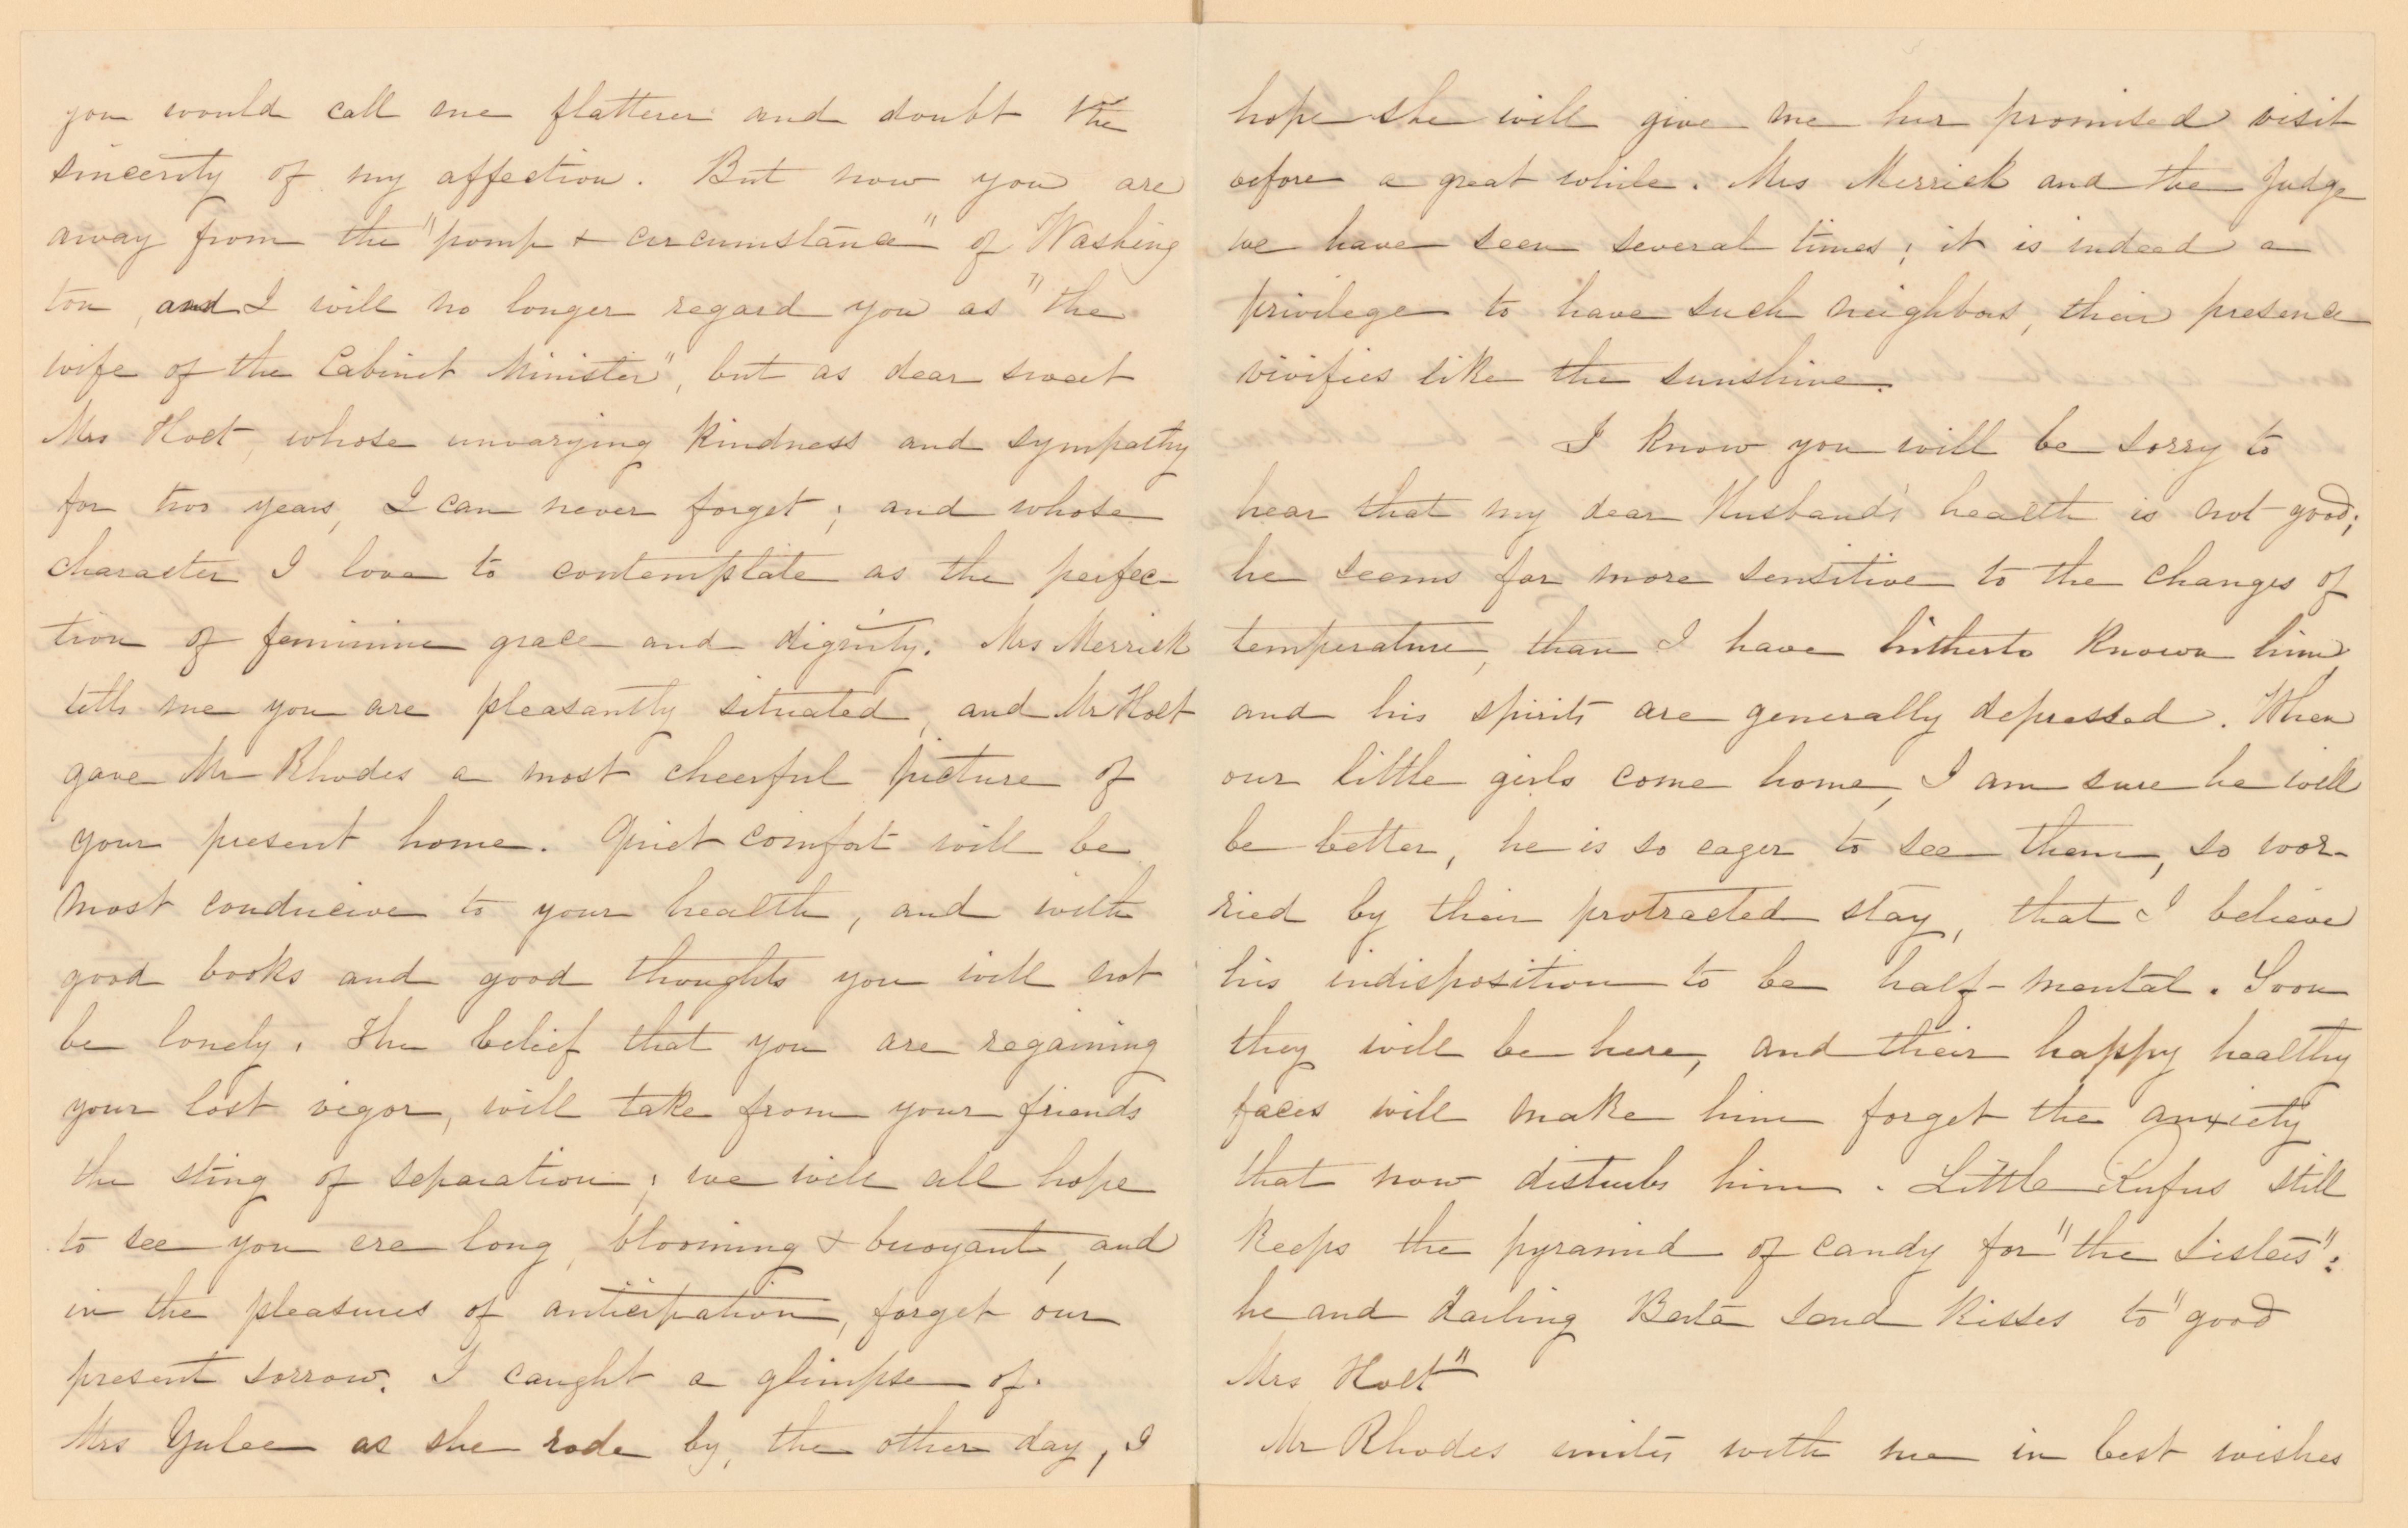 you would call me flatterer and doubt the
sincerity of my affection. But now you are
away from the "pomp & circumstance" of Washing
ton, and I will no longer regard you as "the
wife of the Cabinet Minister", but as dear sweet
Mrs Holt, whose unvarying kindness and sympathy
for two years, I can never forget; and whose
character I love to contemplate as the perfec-
tion of feminine grace and dignity. Mrs Merrick
tells me you are pleasantly situated, and Mr Holt
gave Mr Rhodes a most cheerful picture of
your present home. Quiet comfort will be
most conducive to your health, and with
good books and good thoughts you will not
be lonely. The belief that you are regaining
your lost vigor, will take from your friends
the sting of separation; we will all hope
to see you ere long, blooming & buoyant, and
in the pleasures of anticipation, forget our
present sorrow. I caught a glimpse of
Mrs Yulee as she rode by, the other day, I
hope she will give me her promised visit
before a great while. Mrs Merrick and the Judge
we have seen several times; it is indeed a
privilege to have such neighbors, their presence
vivifies like the sunshine.
I know you will be sorry to
hear that my dear Husband's health is not good;
he seems far more sensitive to the changes of
temperature, than I have hitherto known him,
and his spirits are generally depressed. When
our little girls come home, I am sure he will
be better, he is so eager to see them, so wor-
ried by their protracted stay, that I believe
his indisposition to be half-mental. Soon
they will be here, and their happy healthy
faces will make him forget the anxiety
that now disturbs him. Little Rufus still
keeps the pyramid of candy for "the Sisters":
he and darling Berta send kisses to "good
Mrs Holt"
Mr Rhodes unites with me in best wishes